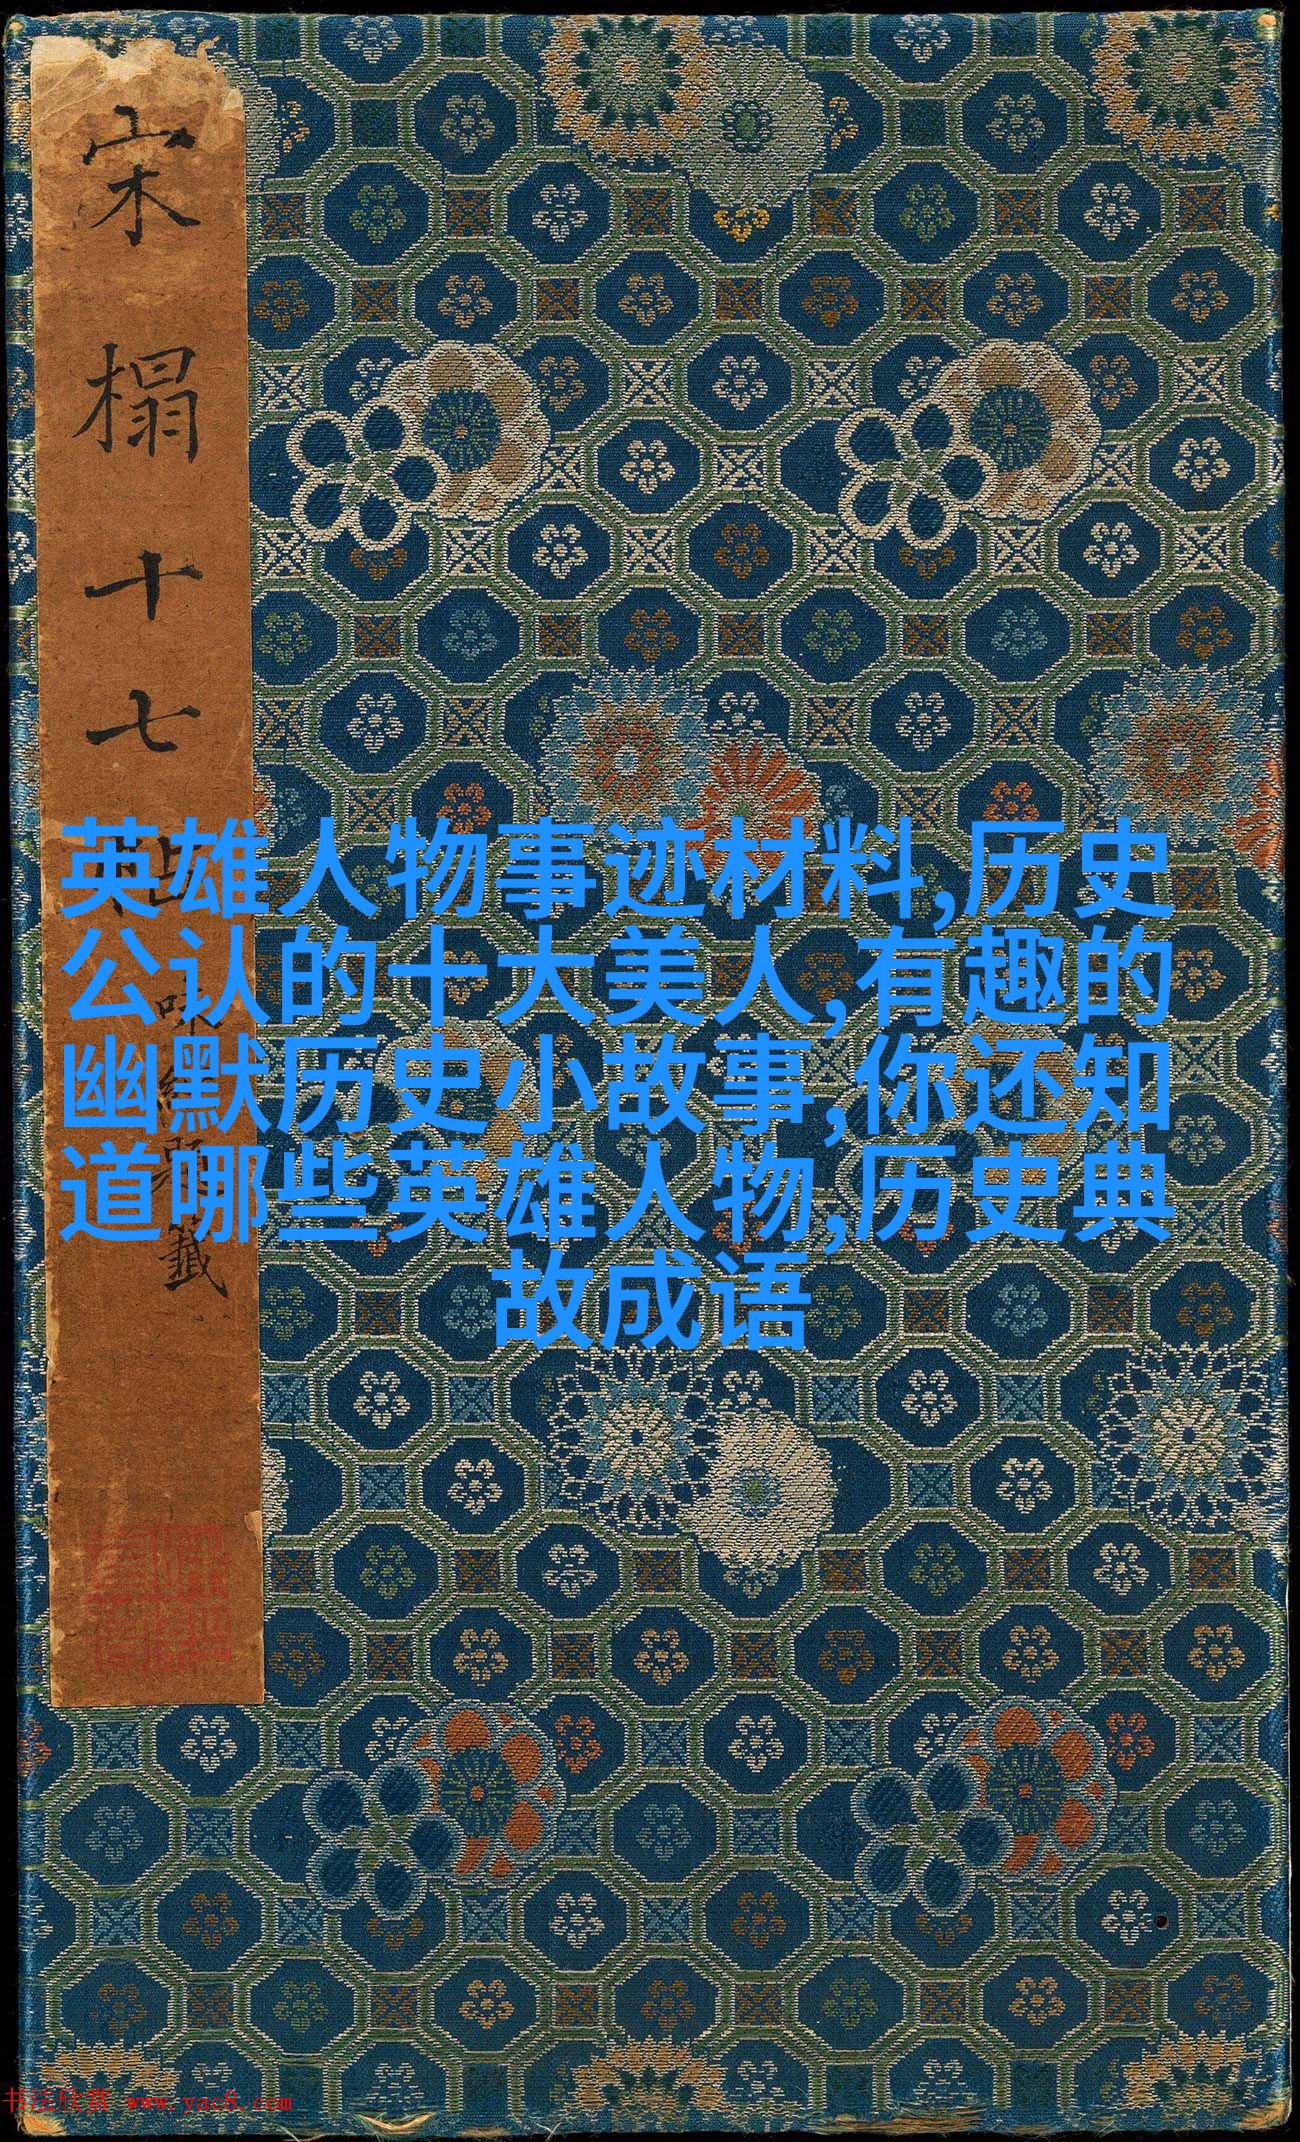 宋榻十七帖
味經書屋籤
英雄人物事迹材料,历史
公认的十大美人,有趣的
幽默历史小故事,你还知
道哪些英雄人物,历史典
故成语
书法欣赏 www.yac8.com